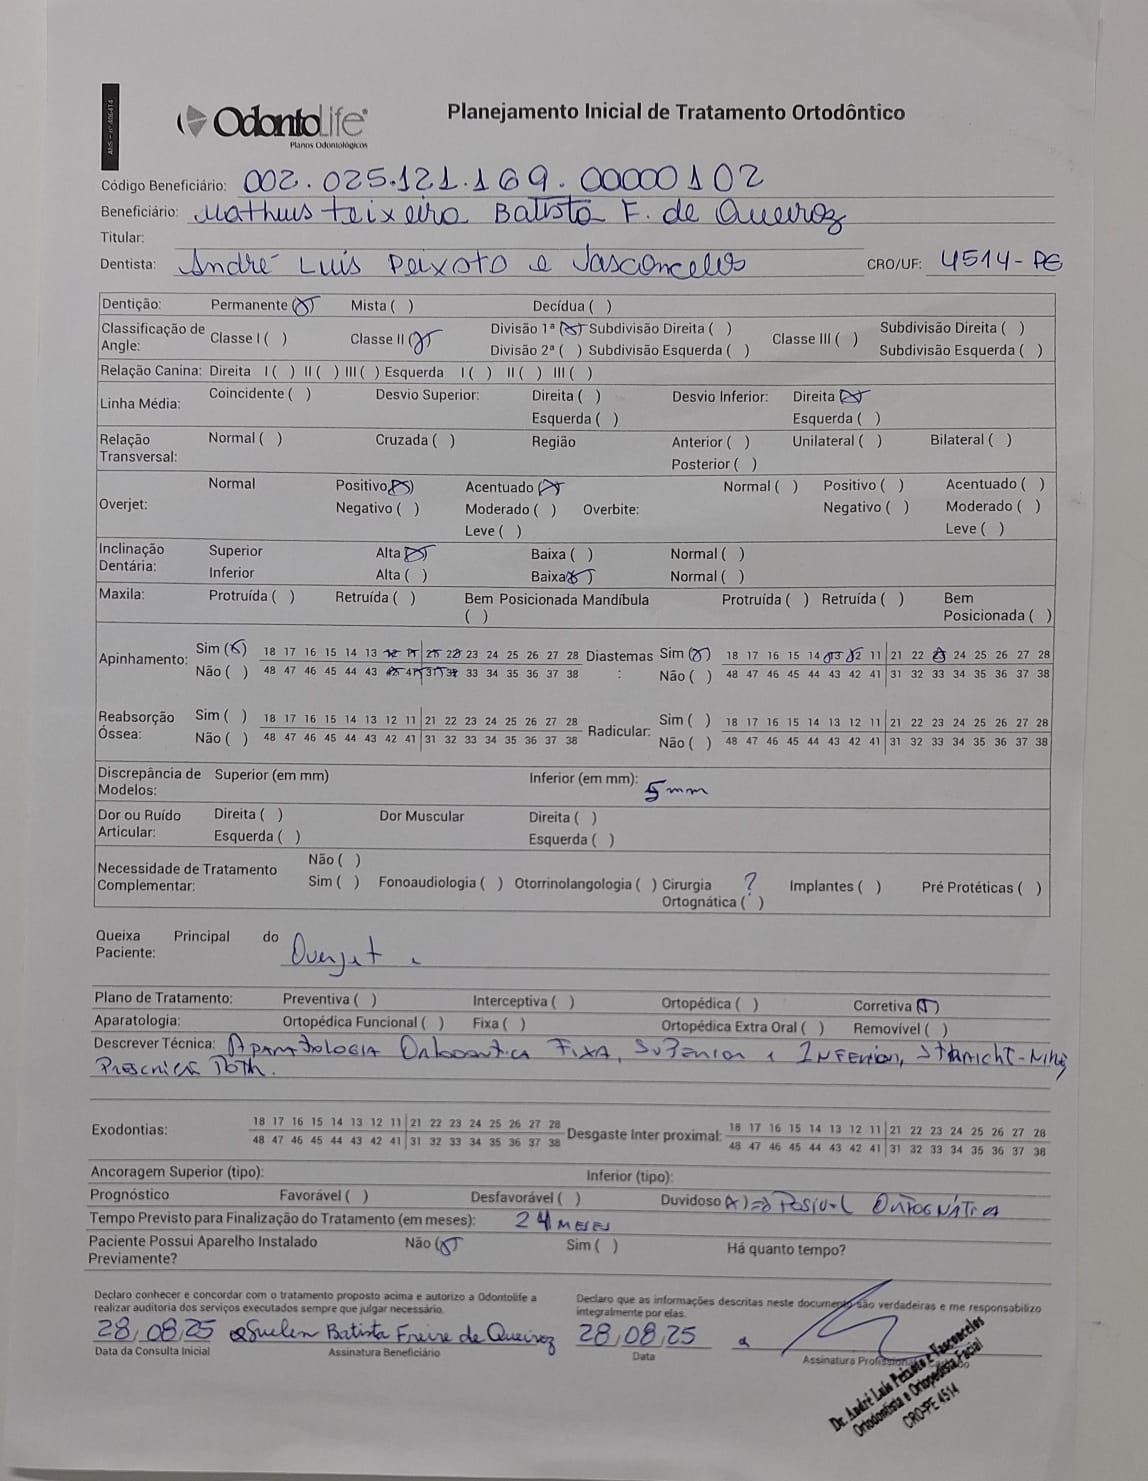 ANS - nº 406414
OdontoLife®
Planos Odontológicos
Planejamento Inicial de Tratamento Ortodôntico
Código Beneficiário: 002.025.121.169.00000102
Beneficiário: Matheus Teixeira Batista F. de Queiroz
Titular:
Dentista: André Luis Peixoto e Vasconcelos CRO/UF: 4514-PE
Dentição: Permanente (X) Mista ( ) Decídua ( )
Classificação de Angle: Classe I ( ) Classe II (X) Divisão 1ª (X) Subdivisão Direita ( ) Classe III ( ) Subdivisão Direita ( )
Divisão 2ª ( ) Subdivisão Esquerda ( ) Subdivisão Esquerda ( )
Relação Canina: Direita I ( ) II ( ) III ( ) Esquerda I ( ) II ( ) III ( )
Linha Média: Coincidente ( ) Desvio Superior: Direita ( ) Desvio Inferior: Direita (X)
Esquerda ( ) Esquerda ( )
Relação Transversal: Normal ( ) Cruzada ( ) Região Anterior ( ) Unilateral ( ) Bilateral ( )
Posterior ( )
Overjet: Normal Positivo (X) Acentuado (X) Overbite: Normal ( ) Positivo ( ) Acentuado ( )
Negativo ( ) Moderado ( ) Negativo ( ) Moderado ( )
Leve ( ) Leve ( )
Inclinação Dentária: Superior Alta (X) Baixa ( ) Normal ( )
Inferior Alta ( ) Baixa (X) Normal ( )
Maxila: Protruída ( ) Retruída ( ) Bem Posicionada ( ) Mandíbula Protruída ( ) Retruída ( ) Bem Posicionada ( )
Apinhamento: Sim (X) 18 17 16 15 14 13 12 11 21 22 23 24 25 26 27 28 Diastemas : Sim (X) 18 17 16 15 14 13 12 11 21 22 23 24 25 26 27 28
Não ( ) 48 47 46 45 44 43 42 41 31 32 33 34 35 36 37 38 Não ( ) 48 47 46 45 44 43 42 41 31 32 33 34 35 36 37 38
Reabsorção Óssea: Sim ( ) 18 17 16 15 14 13 12 11 21 22 23 24 25 26 27 28 Radicular: Sim ( ) 18 17 16 15 14 13 12 11 21 22 23 24 25 26 27 28
Não ( ) 48 47 46 45 44 43 42 41 31 32 33 34 35 36 37 38 Não ( ) 48 47 46 45 44 43 42 41 31 32 33 34 35 36 37 38
Discrepância de Modelos: Superior (em mm) Inferior (em mm): 5 mm
Dor ou Ruído Articular: Direita ( ) Dor Muscular Direita ( )
Esquerda ( ) Esquerda ( )
Necessidade de Tratamento Complementar: Não ( )
Sim ( ) Fonoaudiologia ( ) Otorrinolangologia ( ) Cirurgia Ortognática ( ) ? Implantes ( ) Pré Protéticas ( )
Queixa Principal do Paciente: Overjet
Plano de Tratamento: Preventiva ( ) Interceptiva ( ) Ortopédica ( ) Corretiva (X)
Aparatologia: Ortopédica Funcional ( ) Fixa ( ) Ortopédica Extra Oral ( ) Removível ( )
Descrever Técnica: Aparatologia Ortodontica Fixa, Superior e Inferior, Straight-Wire,
Prescrição Roth.
Exodontias: 18 17 16 15 14 13 12 11 21 22 23 24 25 26 27 28 Desgaste Inter proximal: 18 17 16 15 14 13 12 11 21 22 23 24 25 26 27 28
48 47 46 45 44 43 42 41 31 32 33 34 35 36 37 38 48 47 46 45 44 43 42 41 31 32 33 34 35 36 37 38
Ancoragem Superior (tipo): Inferior (tipo):
Prognóstico Favorável ( ) Desfavorável ( ) Duvidoso (X) => Posivel Ortognática
Tempo Previsto para Finalização do Tratamento (em meses): 24 meses
Paciente Possui Aparelho Instalado Previamente? Não (X) Sim ( ) Há quanto tempo?
Declaro conhecer e concordar com o tratamento proposto acima e autorizo a Odontolife a realizar auditoria dos serviços executados sempre que julgar necessário.
Declaro que as informações descritas neste documento são verdadeiras e me responsabilizo integralmente por elas.
28,08,25 Suelen Batista Freire de Queiroz 28,08,25
Data da Consulta Inicial Assinatura Beneficiário Data Assinatura
Dr. André Luis Peixoto e Vasconcelos
Ortodontista e Ortopedista Facial
CRO-PE 4514